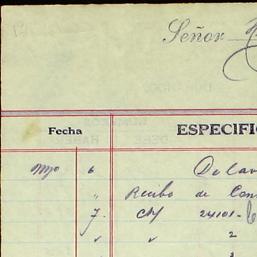 Señor
Fecha ESPECIFI
Mzo 6 De la
" Recibo de Con
7. Ch/ 24101.
" " 2